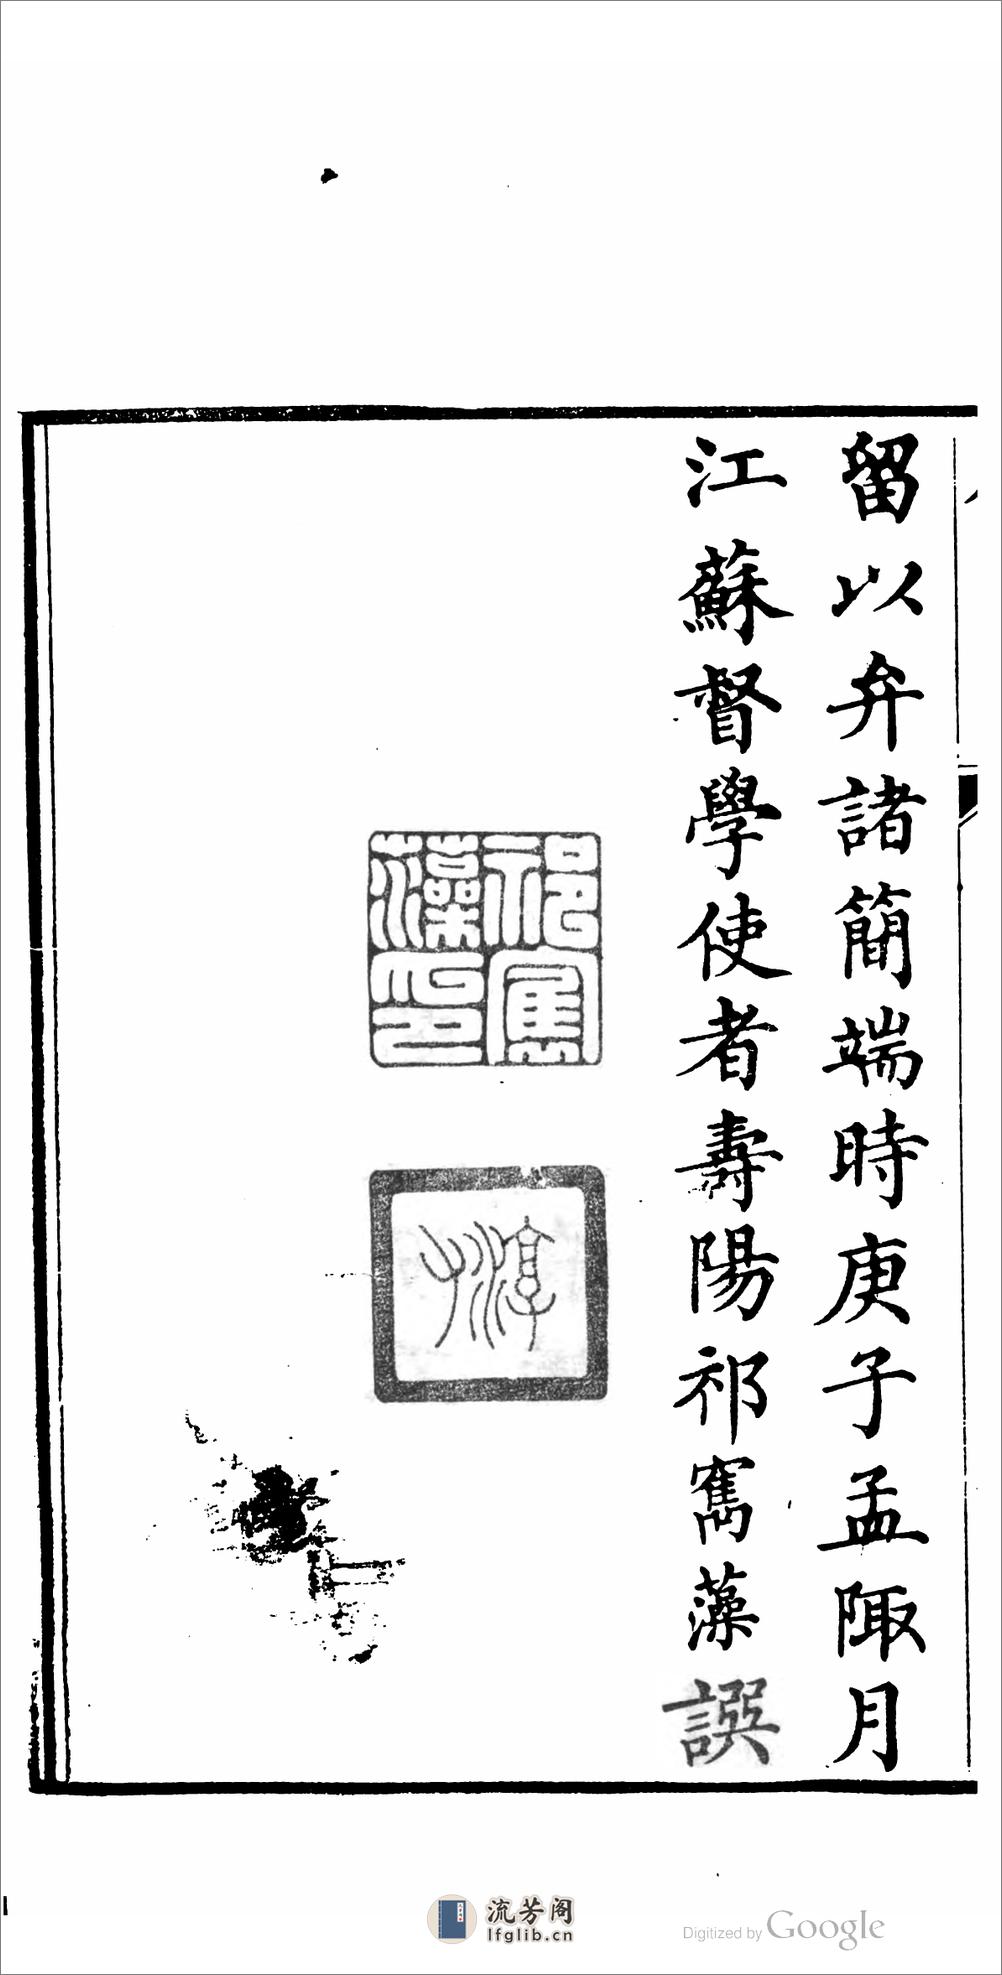 留以弁諸簡端時庚子孟陬月
江蘇督學使者壽陽祁寯藻譔
祁寯藻印
淳父
流芳阁
lfglib.cn
Digitized by Google